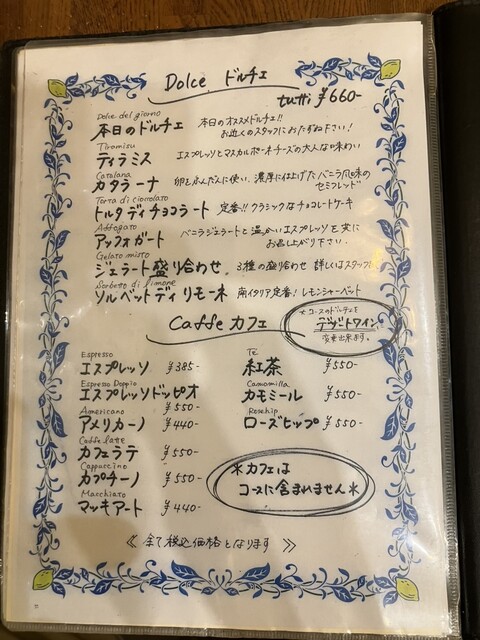 Dolce ドルチェ
tutti ¥660-
Dolce del giorno
本日のドルチェ 本日のオススメドルチェ!!
お近くのスタッフにおたずね下さい!
Tiramisu
ティラミス エスプレッソとマスカルポーネチーズの大人な味わい
Catalana
カタラーナ 卵をふんだんに使い、濃厚に仕上げたバニラ風味の
セミフレッド
Torta di cioccolato
トルタ ディ チョコラート 定番!! クラシックなチョコレートケーキ
Affogato
アッフォガート バニラジェラートと温かいエスプレッソを共に
お召し上がり下さい。
Gelato misto
ジェラート盛り合わせ 3種の盛り合わせ 詳しくはスタッフに
Sorbetto di limone
ソルベット ディ リモーネ 南イタリア定番! レモンシャーベット
*コースのドルチェを
デザートワインに
変更出来ます。
Caffe カフェ
Espresso
エスプレッソ ¥385-
Espresso Doppio
エスプレッソドッピオ
¥550-
Americano
アメリカーノ ¥440-
Caffe latte
カフェラテ ¥550-
Cappuccino
カプチーノ ¥550-
Macchiato
マッキアート ¥440-
Te
紅茶 ¥550-
Camomilla
カモミール ¥550-
Rosehip
ローズヒップ ¥550-
*カフェは
コースに含まれません*
《 全て税込価格となります 》